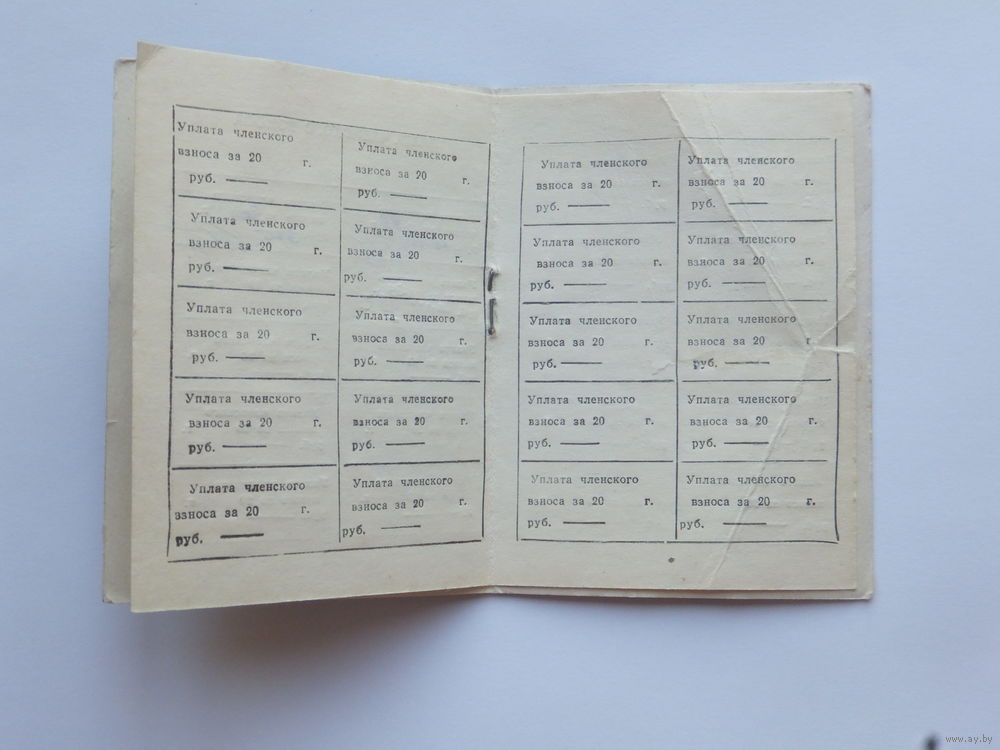 Уплата членского
взноса за 20 г.
руб.
Уплата членского
взноса за 20 г.
руб.
Уплата членского
взноса за 20 г.
руб.
Уплата членского
взноса за 20 г.
руб.
Уплата членского
взноса за 20 г.
руб.
Уплата членского
взноса за 20 г.
руб.
Уплата членского
взноса за 20 г.
руб.
Уплата членского
взноса за 20 г.
руб.
Уплата членского
взноса за 20 г.
руб.
Уплата членского
взноса за 20 г.
руб.
Уплата членского
взноса за 20 г.
руб.
Уплата членского
взноса за 20 г.
руб.
Уплата членского
взноса за 20 г.
руб.
Уплата членского
взноса за 20 г.
руб.
Уплата членского
взноса за 20 г.
руб.
Уплата членского
взноса за 20 г.
руб.
Уплата членского
взноса за 20 г.
руб.
Уплата членского
взноса за 20 г.
руб.
Уплата членского
взноса за 20 г.
руб.
Уплата членского
взноса за 20 г.
руб.
www.ay.by